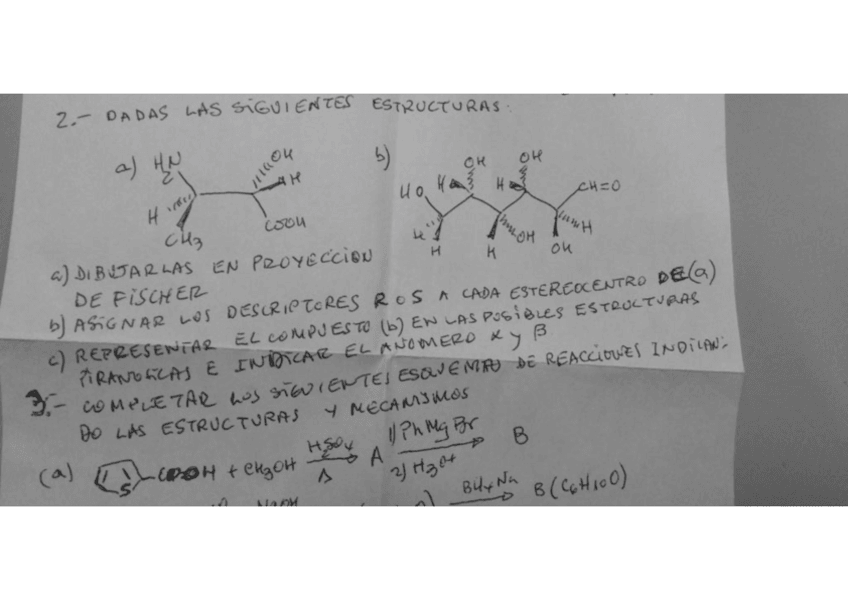 2.- DADAS LAS SIGUIENTES ESTRUCTURAS.
a) H2N OH H H CH3 COOH
b) HO H OH H OH CH=O H H H OH OH H
a) DIBUJARLAS EN PROYECCION
DE FISCHER
b) ASIGNAR LOS DESCRIPTORES R O S A CADA ESTEREOCENTRO DE (a)
c) REPRESENTAR EL COMPUESTO (b) EN LAS POSIBLES ESTRUCTURAS
PIRANOSICAS E INDICAR EL ANOMERO α y β
3.- COMPLETAR LOS SIGUIENTES ESQUEMAS DE REACCIONES INDICAN-
DO LAS ESTRUCTURAS Y MECANISMOS
(a) S COOH + CH3OH H2SO4 Δ A 1) PhMgBr 2) H3O+ B
BH4Na B (C6H10O)